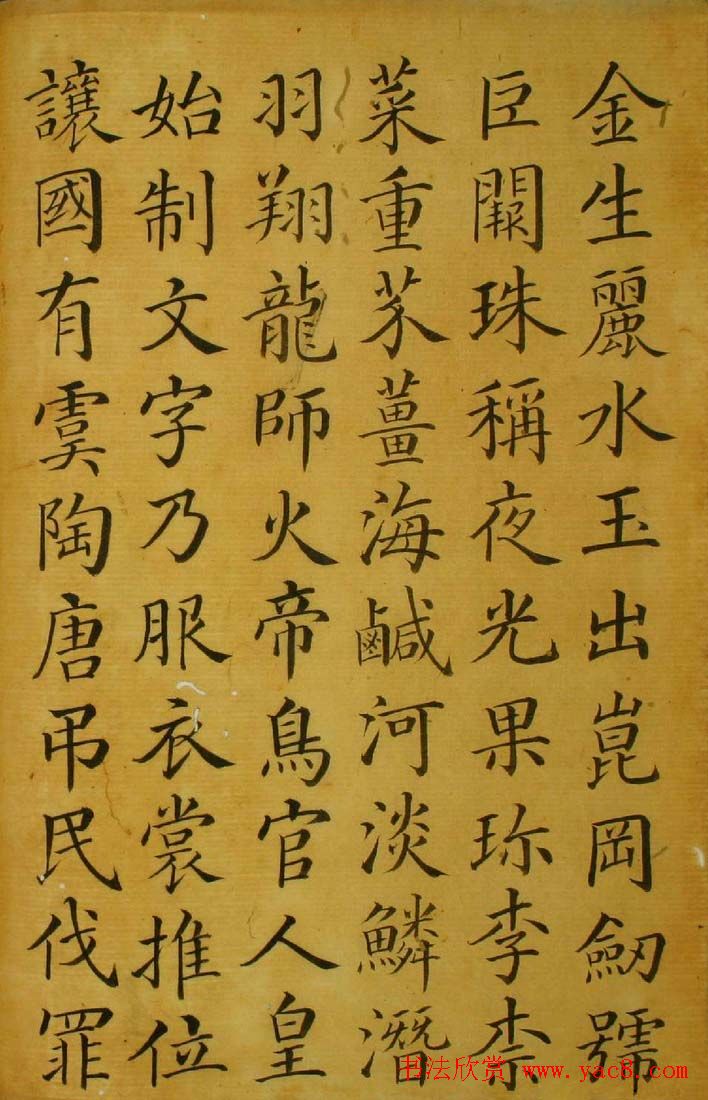 金生麗水玉出崑岡劒號
巨闕珠稱夜光果珎李柰
菜重芥薑海鹹河淡鱗潛
羽翔龍師火帝鳥官人皇
始制文字乃服衣裳推位
讓國有虞陶唐吊民伐罪
书法欣赏 www.yac8.com